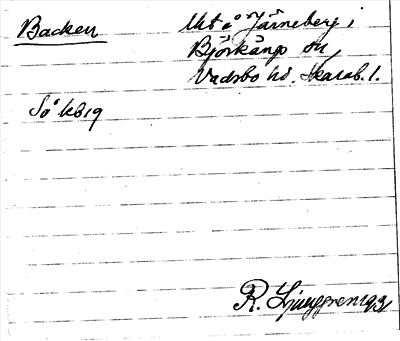 Backen
Utt å Järneberg i
Björkäng sn,
Vadsbo hd. Skarab. l.
So kb 19
R. Ljunggren 1931